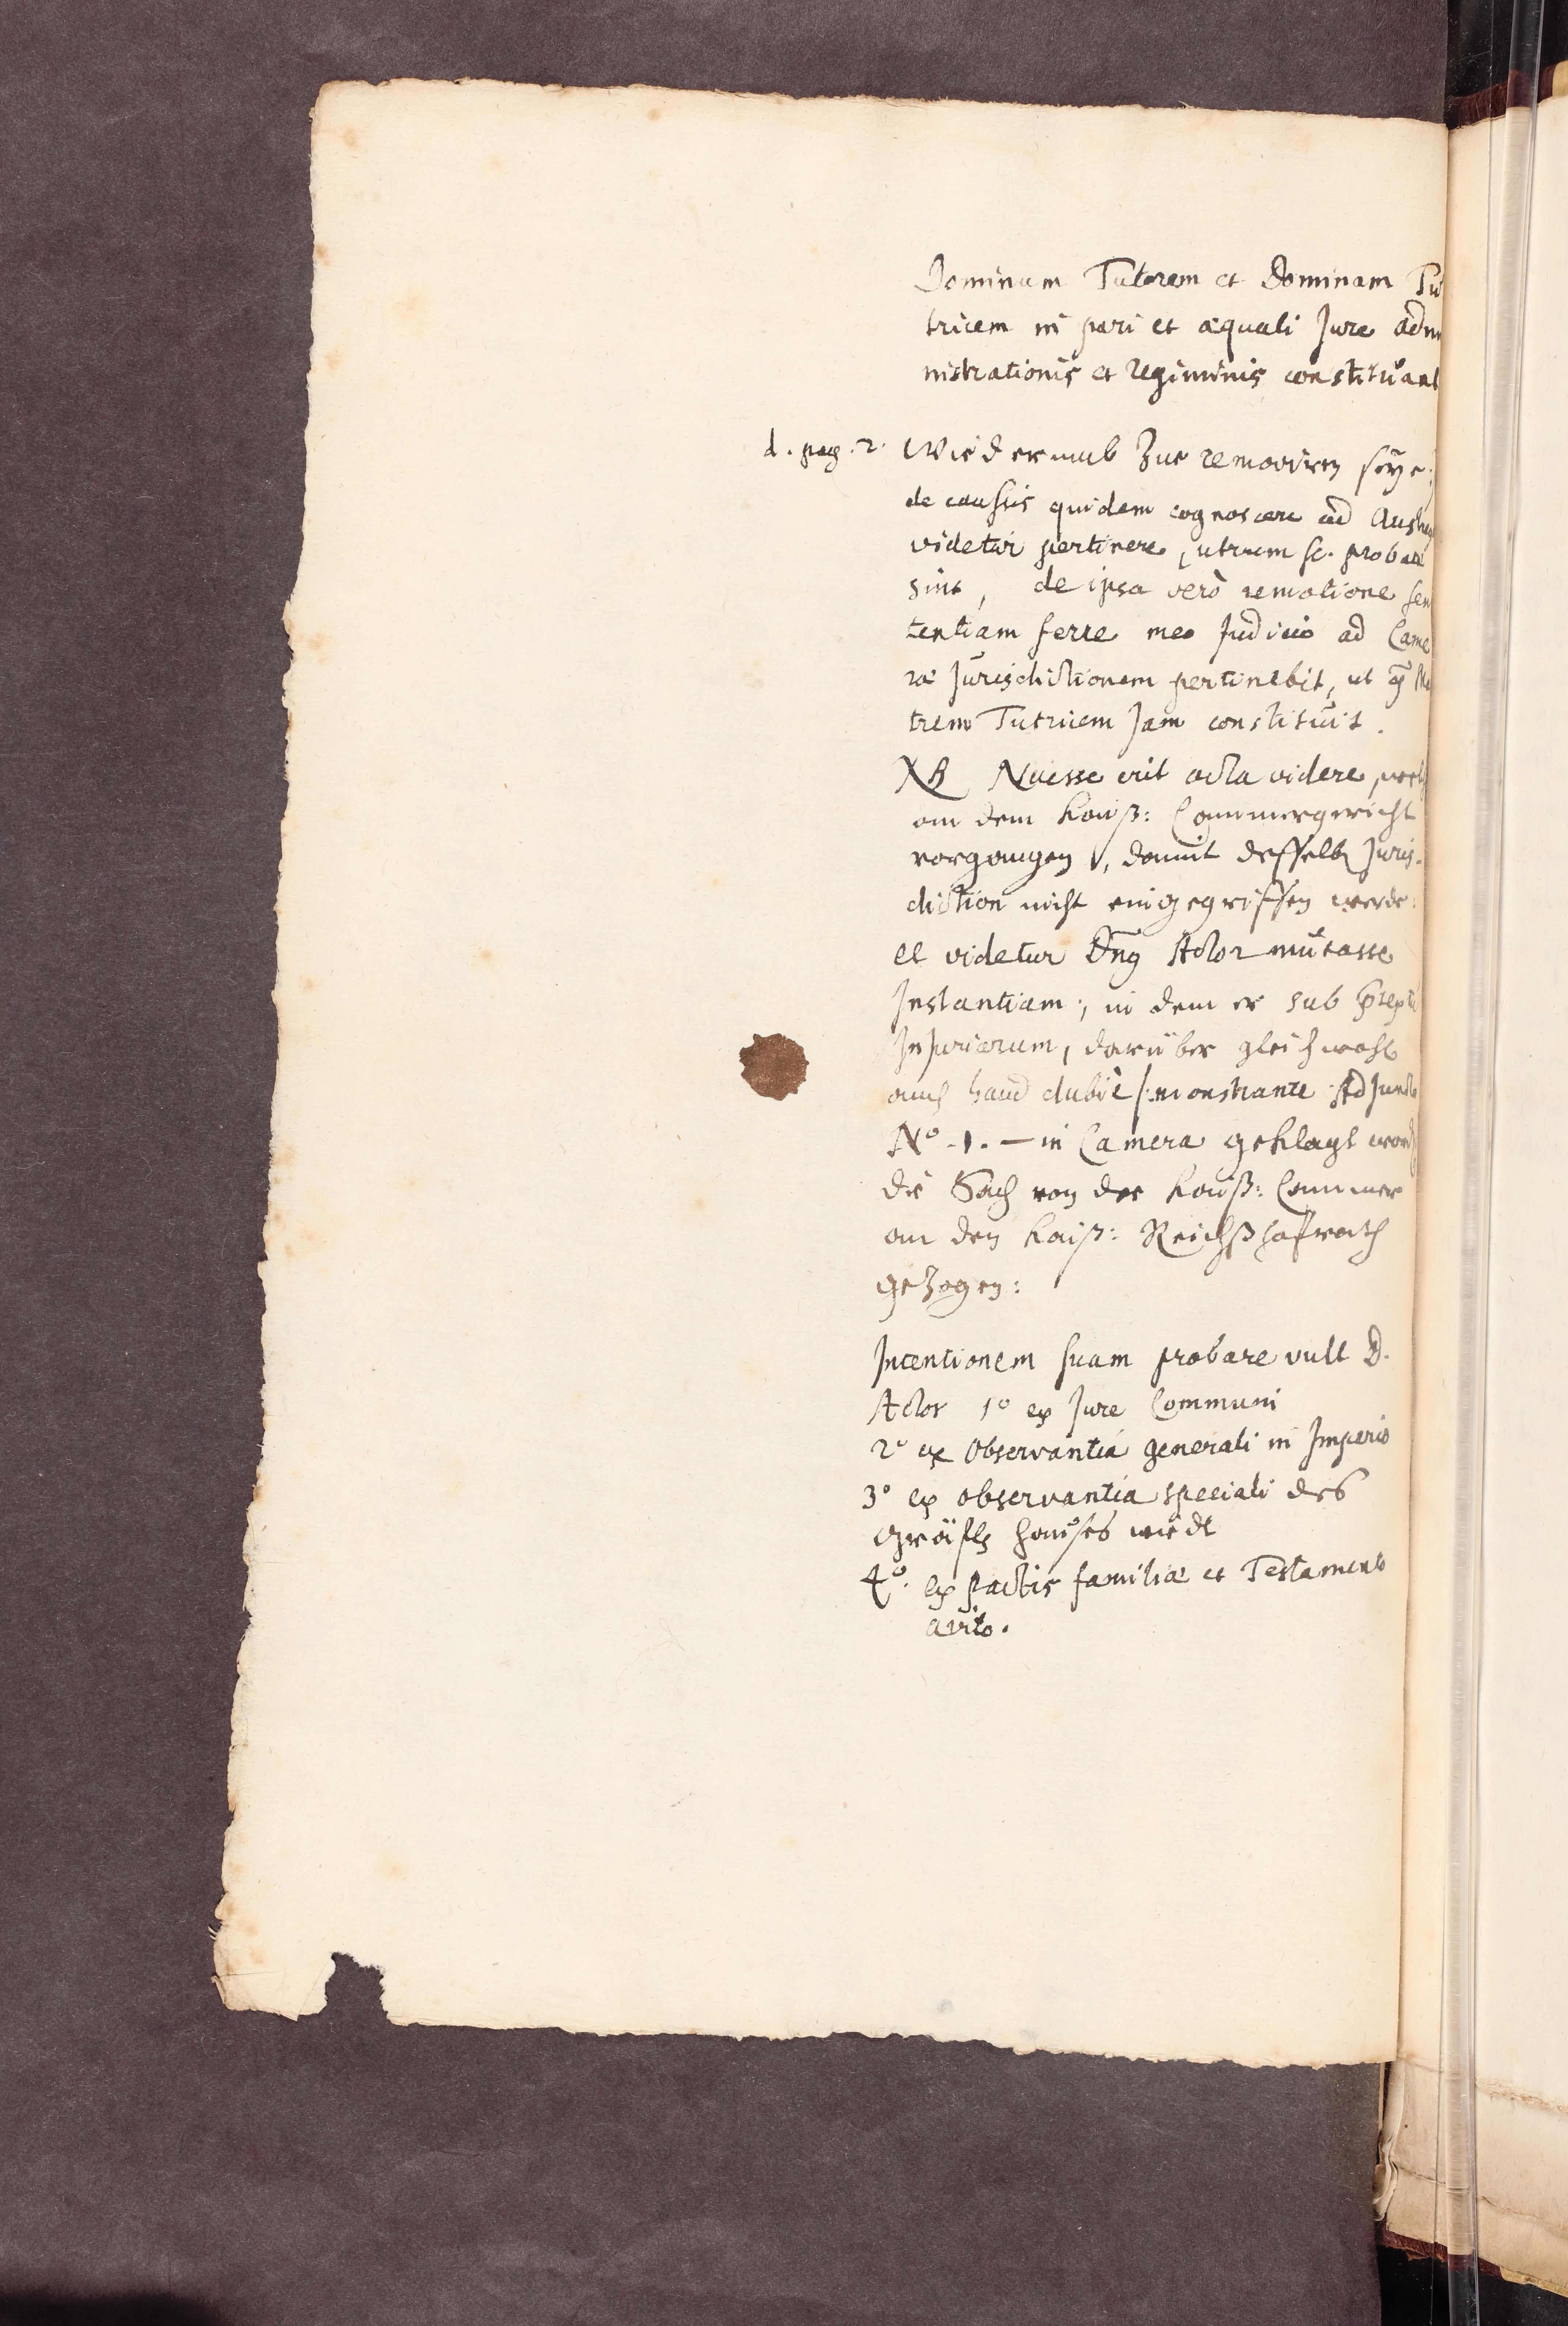 Dominum Tutorem et Dominam Tu
tricem in pari et æquali Jure admi
nistrationis et Regiminis constituant
d. pag. 2. Wiedermub Zue removiren seye;
de causis quidem cognoscere ad Austreg
videtur pertinere, utrum sc. probatæ
sint, de ipsa verò remotione sen
tentiam ferre meo Judicio ad Came
ræ Jurisdictionem pertinebit, ut
trem Tutricem Jam constituit.
NB Necesse erit acta videre, welch
an dem Kaiß: Cammergericht
vorgangen, damit desselb Juris-
diction nicht eingegriffen werde:
et videtur Dns Actor mutasse
Instantiam; in dem er sub
Injuriarum, darüber gleichwohl
auch haud dubiè /: monstrante Adjuncto
No. 1. — in Camera geklagt word
die Sach von der Kaiß: Cammer
an den Kaiß: Reichßhofrath
geZogen:
Intentionem suam probare vult D.
Actor 1o ex Jure Communi
2o ex Observantiâ generali in Imperio
3o ex observantia speciali des
Gräfl Hauses wiedt
4o. ex pactis familiæ et Testamento
avito.